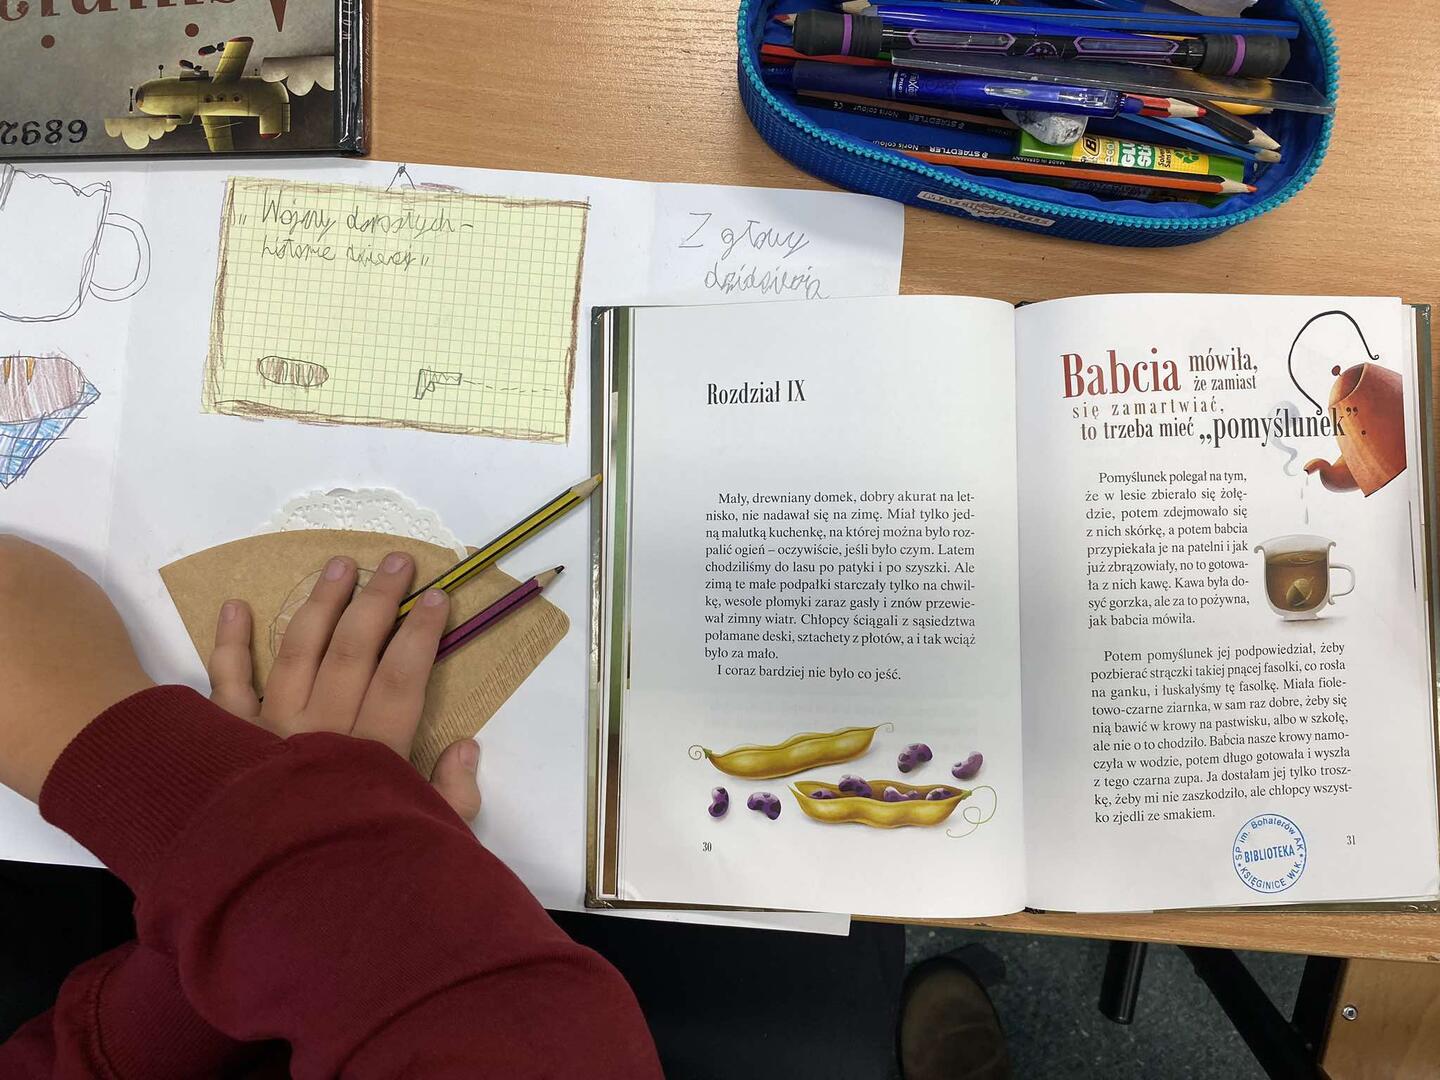 68920
„Wojny dorosłych -
historie dzieci"
Z głowy
STAEDTLER
Noris colour
STAEDTLER
Noris colour
MADE IN GERMANY
BIC
eco
Rozdział IX
Mały, drewniany domek, dobry akurat na let-
nisko, nie nadawał się na zimę. Miał tylko jed-
ną malutką kuchenkę, na której można było roz-
palić ogień – oczywiście, jeśli było czym. Latem
chodziliśmy do lasu po patyki i po szyszki. Ale
zimą te małe podpałki starczały tylko na chwil-
kę, wesołe płomyki zaraz gasły i znów przewie-
wał zimny wiatr. Chłopcy ściągali z sąsiedztwa
połamane deski, sztachety z płotów, a i tak wciąż
było za mało.
I coraz bardziej nie było co jeść.
30
Babcia mówiła,
że zamiast
się zamartwiać,
to trzeba mieć „pomyślunek".
Pomyślunek polegał na tym,
że w lesie zbierało się żołę-
dzie, potem zdejmowało się
z nich skórkę, a potem babcia
przypiekała je na patelni i jak
już zbrązowiały, no to gotowa-
ła z nich kawę. Kawa była do-
syć gorzka, ale za to pożywna,
jak babcia mówiła.
Potem pomyślunek jej podpowiedział, żeby
pozbierać strączki takiej pnącej fasolki, co rosła
na ganku, i łuskałyśmy tę fasolkę. Miała fiole-
towo-czarne ziarnka, w sam raz dobre, żeby się
nią bawić w krowy na pastwisku, albo w szkołę,
ale nie o to chodziło. Babcia nasze krowy namo-
czyła w wodzie, potem długo gotowała i wyszła
z tego czarna zupa. Ja dostałam jej tylko trosz-
kę, żeby mi nie zaszkodziło, ale chłopcy wszyst-
ko zjedli ze smakiem.
31
SP im. Bohaterów AK
BIBLIOTEKA
KSIĘGINICE WLK.